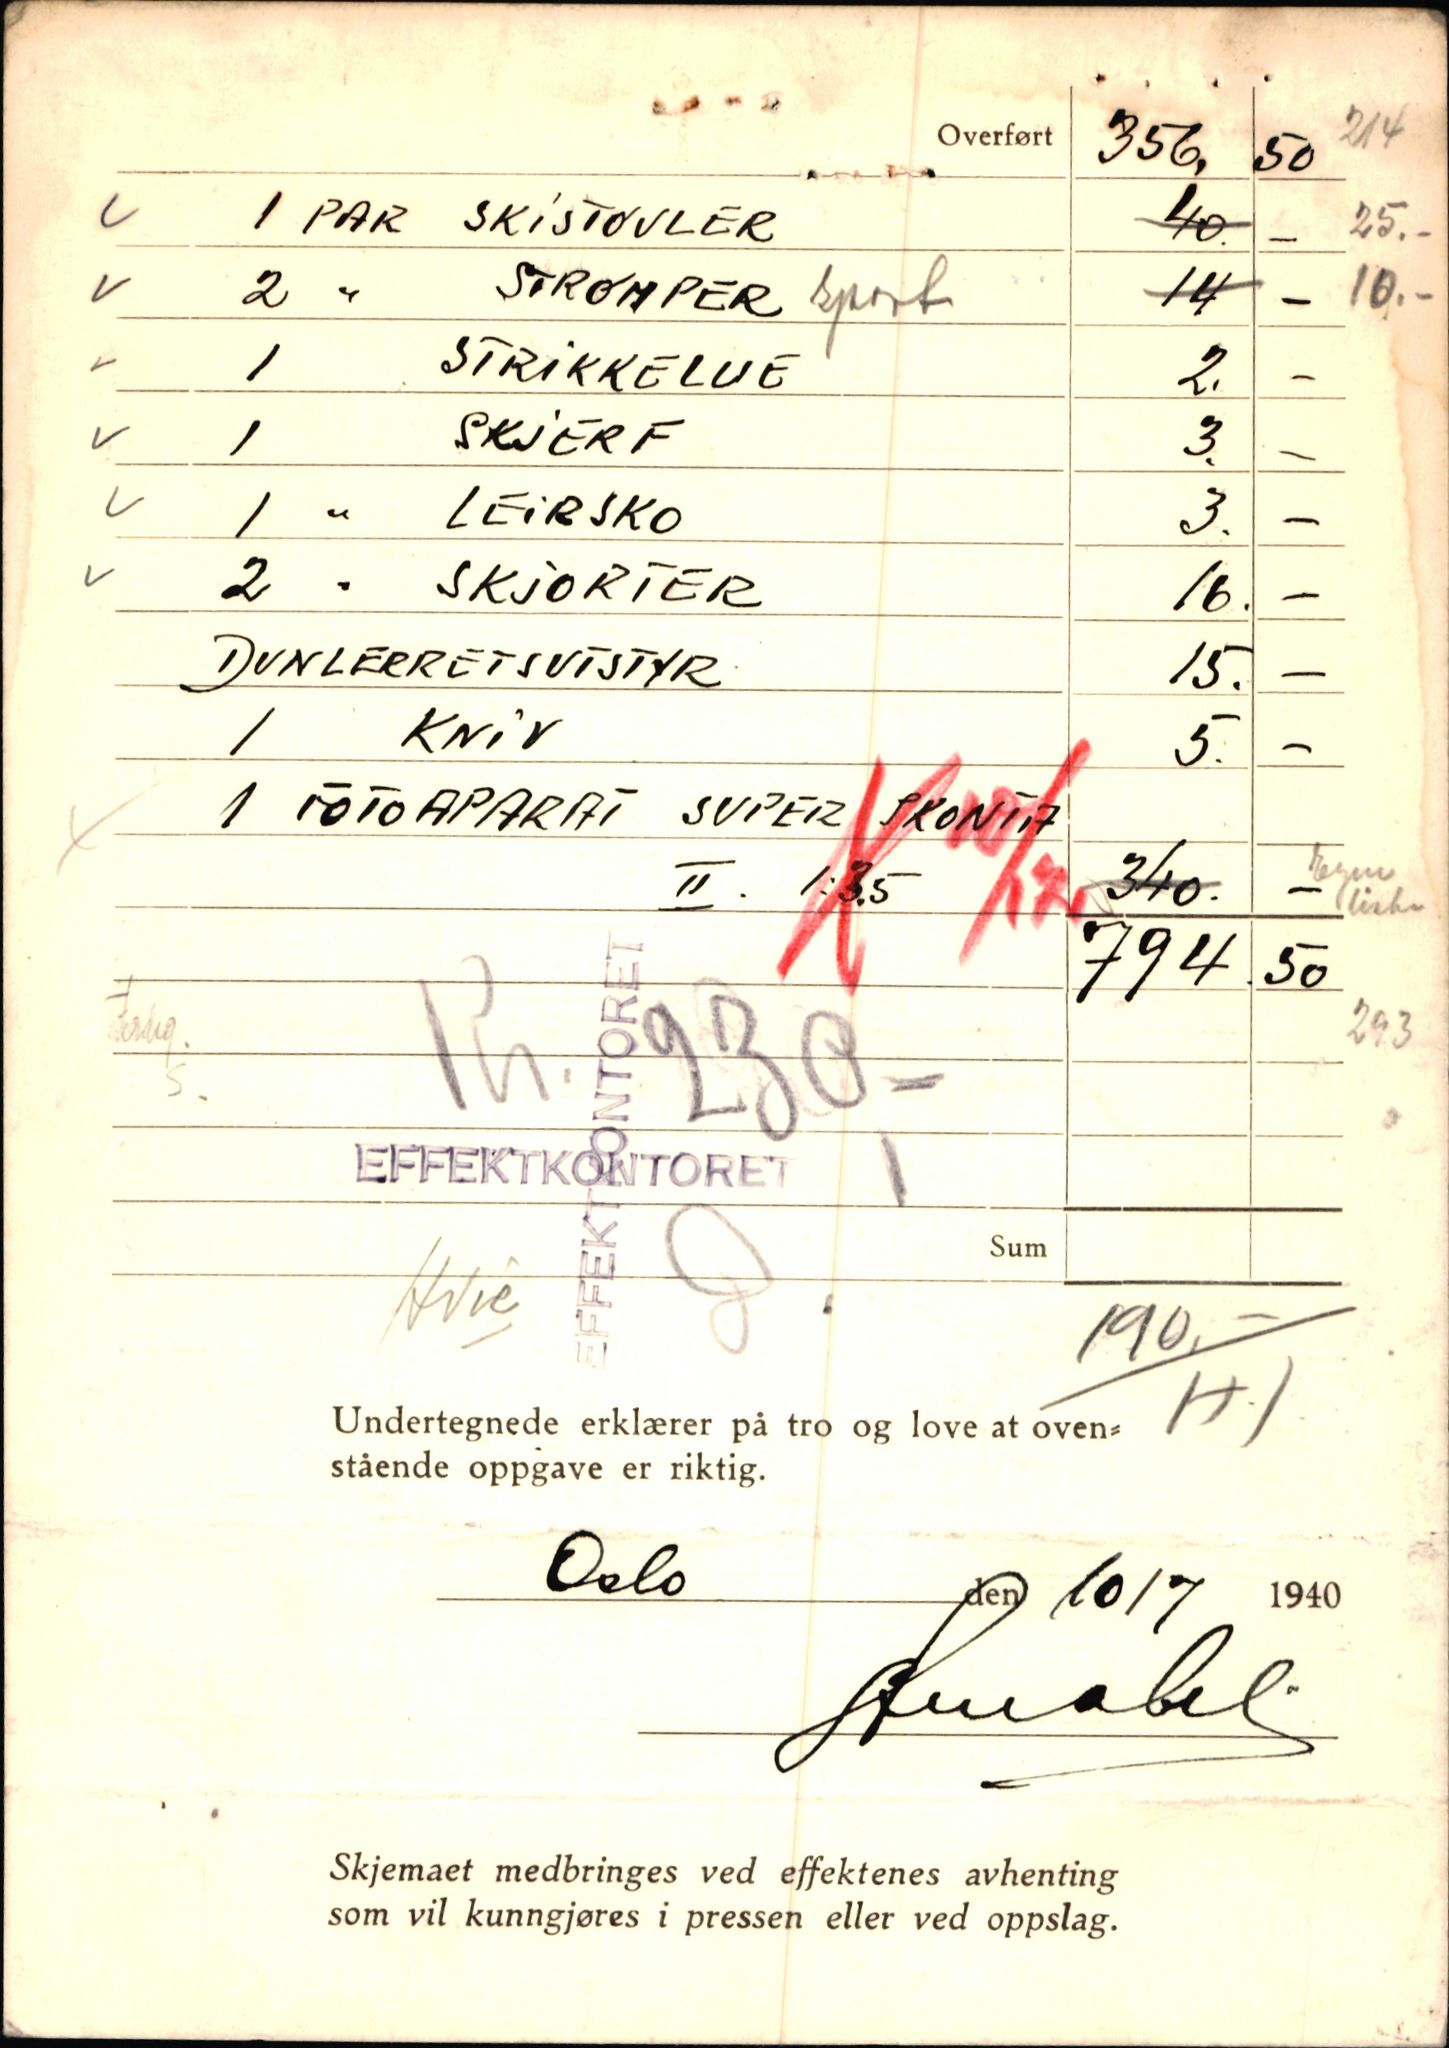 Overført 356, 50 214
1 PAR SKISTØVLER 40. – 25.–
2 " STRØMPER sport 14 – 10.–
1 STRIKKELUE 2. –
1 SKJERF 3. –
1 " LEIRSKO 3. –
2 " SKJORTER 16. –
DUNLERRETSUTSTYR 15. –
1 KNIV 5. –
1 FOTOAPARAT SUPER IKONTA
II. 1:3.5 340. –
794. 50
293
Kr. 230 –
EFFEKTKONTORET
EFFEKTKONTORET
Sum
190.–
H.J.
Undertegnede erklærer på tro og love at oven=
stående oppgave er riktig.
Oslo den 10/7 1940
Skjemaet medbringes ved effektenes avhenting
som vil kunngjøres i pressen eller ved oppslag.